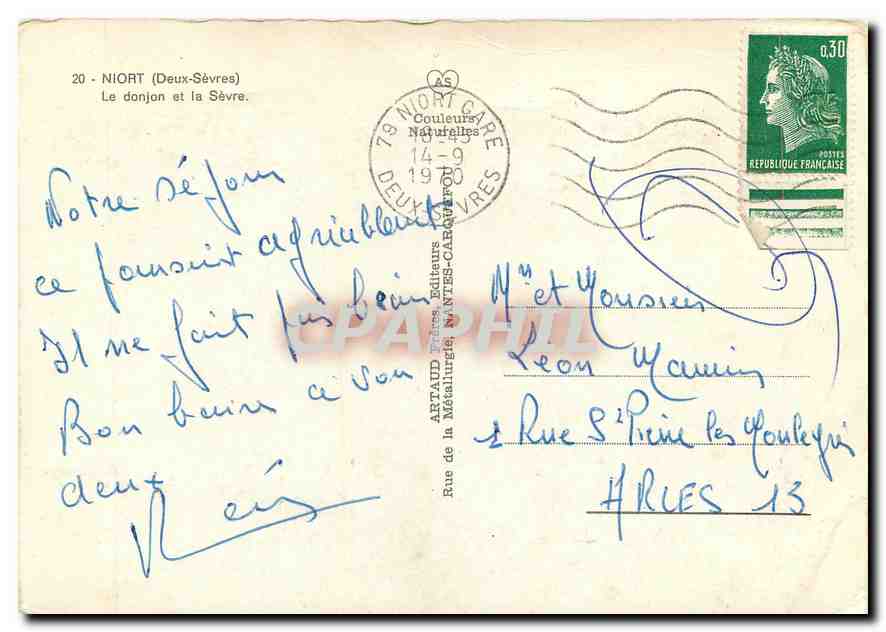 20 - NIORT (Deux-Sèvres)
Le donjon et la Sèvre.
AS
Couleurs
Naturelles
79 NIORT GARE
14-9
DEUX-SÈVRES
0,30
POSTES
REPUBLIQUE FRANÇAISE
Notre séjour
ce poursuit agréablement
Il ne fait pas
Bon baiser a vou
deux
ARTAUD Frères, Editeurs
Rue de la Métallurgie, NANTES-CARQUEFOU
CPAPHIL
et Monsieur
Léon
Rue St Pierre les
ARLES 13